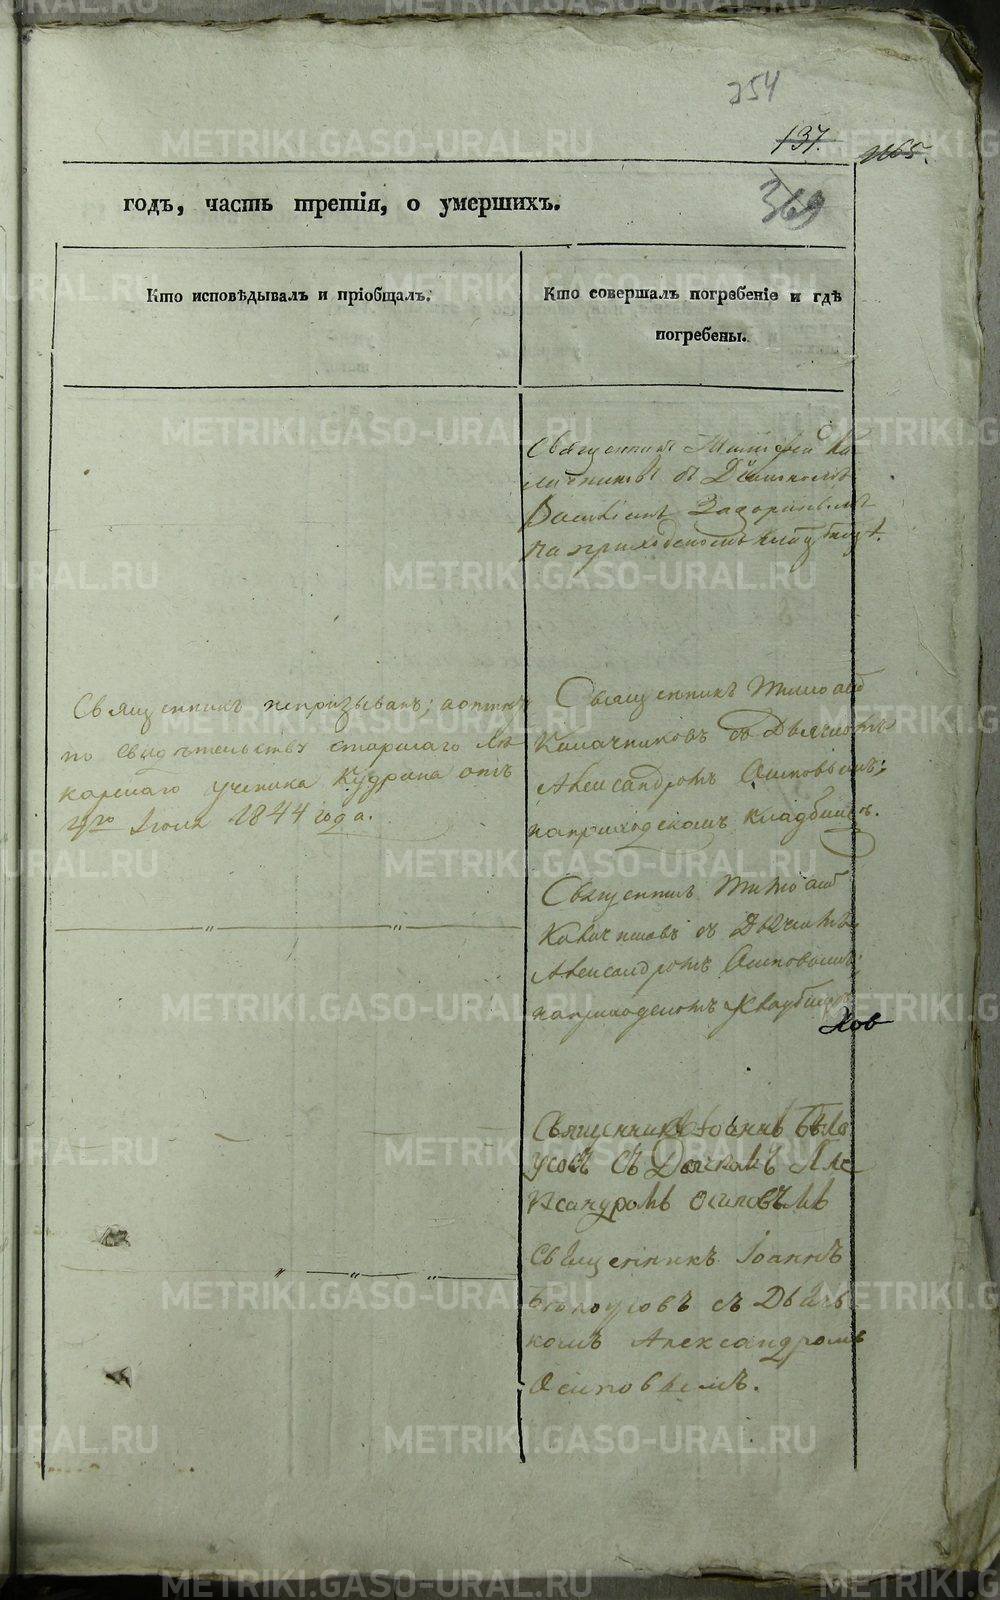 354
137.
годъ, часть третія, о умершихъ.
369
Кто исповѣдывалъ и пріобщалъ.
Кто совершалъ погребеніе и гдѣ
погребены.
Священникъ
съ
Священникъ непризыванъ;
по свидѣтельству старшаго лѣ
карскаго ученика Кудрина отъ
Іюля 1844 года.
Священникъ Тимофей
Калачниковъ съ Дьячкомъ
Александромъ Осиповымъ;
на приходскомъ кладбищѣ.
Священникъ Тимофей
съ Дьячкомъ
Александромъ Осиповымъ;
на приходскомъ кладбищѣ
Священникъ Іоаннъ Бѣло
усовъ съ Дьячкомъ Але
ксандромъ Осиповымъ
Священникъ Іоаннъ
Бѣлоусовъ съ Дьячь
комъ Александромъ
Осиповымъ.
METRIKI.GASO-URAL.RU